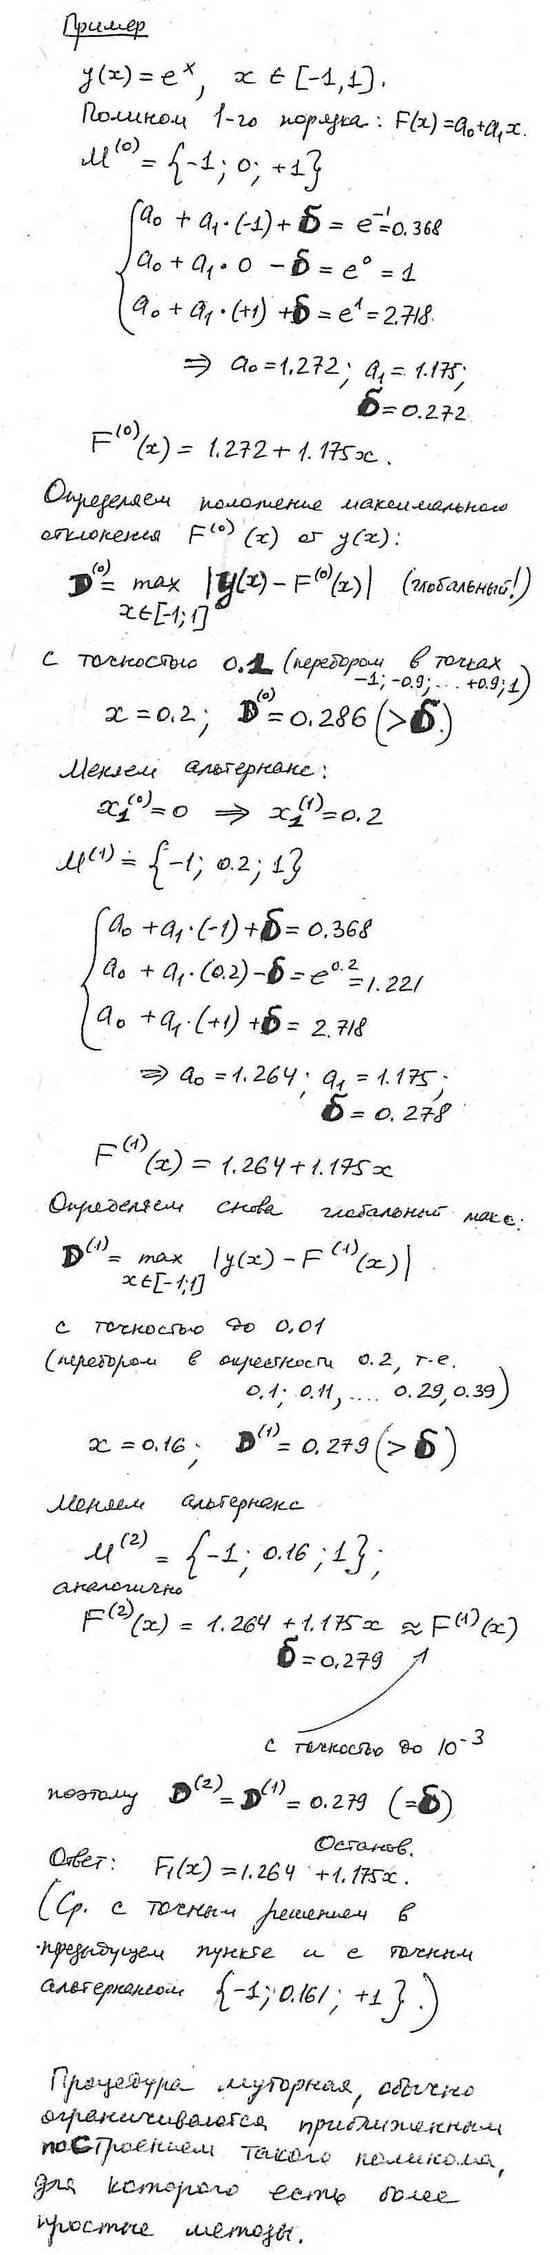 Пример
y(x) = e^x, x ∈ [-1,1].
Полином 1-го порядка: F(x)=a₀+a₁x.
M^(0) = {-1; 0; +1}
a₀ + a₁·(-1) + δ = e^-1=0.368
a₀ + a₁·0 - δ = e^0 = 1
a₀ + a₁·(+1) + δ = e^1 = 2.718
⇒ a₀=1.272; a₁=1.175;
δ=0.272
F^(0)(x) = 1.272 + 1.175x.
Определяем положение максимального
отклонения F^(0)(x) от y(x):
D^(0) = max |y(x) - F^(0)(x)| (глобальный!)
x∈[-1;1]
с точностью 0.1 (перебором в точках
-1; -0.9; ... +0.9; 1)
x = 0.2; D^(0) = 0.286 (>δ.)
Меняем альтернанс:
x₁^(0)=0 ⇒ x₁^(1)=0.2
M^(1) = {-1; 0.2; 1}
a₀ + a₁·(-1) + δ = 0.368
a₀ + a₁·(0.2) - δ = e^0.2 = 1.221
a₀ + a₁·(+1) + δ = 2.718
⇒ a₀ = 1.264; a₁ = 1.175;
δ = 0.278
F^(1)(x) = 1.264 + 1.175x
Определяем снова глобальный макс:
D^(1) = max |y(x) - F^(1)(x)|
x∈[-1;1]
с точностью до 0,01
(перебором в окрестности 0.2, т-е.
0.1; 0.11, .... 0.29, 0.39)
x = 0.16; D^(1) = 0.279 (>δ)
Меняем альтернанс
M^(2) = {-1; 0.16; 1};
аналогично
F^(2)(x) = 1.264 + 1.175x ≈ F^(1)(x)
δ = 0.279
с точностью до 10^-3
поэтому D^(2) = D^(1) = 0.279 (=δ)
Останов.
Ответ: F₁(x) = 1.264 + 1.175x.
(Ср. с точным решением в
предыдущем пункте и с точным
альтернансом {-1; 0.161; +1}.)
Процедура муторная, обычно
ограничиваются приближенным
построением такого полинома,
для которого есть более
простые методы.